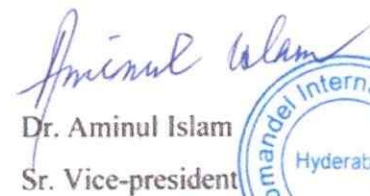 Aminul Islam
Dr. Aminul Islam
Sr. Vice-president
omandel Intern
Hyderab